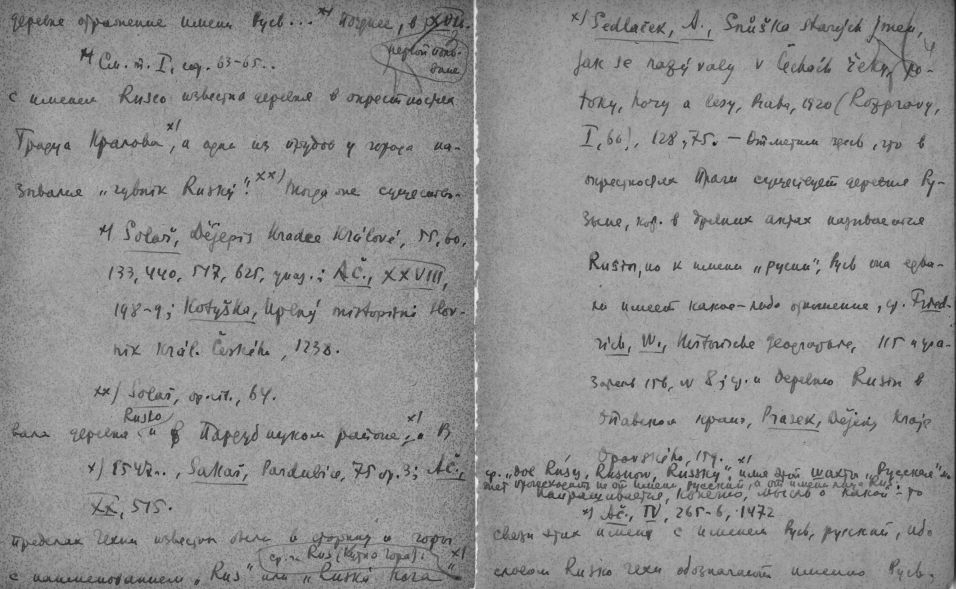 деревне отражение имени Русь... x) Позднее, в XVII.
первой поло-
вине
x) См. т. I, стр. 63-65..
с именем Rusko известна деревня в окрестностях
Градца Кралова x), а один из прудов у города на-
зывался "rybník Ruský". xx) Тогда же существо-
x) Solař, Dějepis Hradce Králové, 55, 60,
133, 440, 517, 625, указ.; AČ., XXVIII,
198-9; Kotyška, Úplný místopisný slov-
ník Král. Českého, 1238.
xx) Solař, op. cit., 64.
Rusko
вала деревня " в Пардубицком районе, x) В
x) 1547., Sakař, Pardubice, 75 ср. 3; AČ.,
XX, 515.
пределах Чехии известны были и горы
ср. и Rus (Кутна Гора).
с наименованием "Rus" или "Ruská hora" x)
x) Sedláček, A., Snůška starých jmen,
jak se nazývaly v Čechách řeky, po-
toky, hory a lesy, Praha, 1920 (Rozpravy,
I, 60), 128, 75. — Отметим здесь, что в
окрестностях Праги существует деревня Ру-
зыне, кот. в древних актах называется
Rusin, но к имени "русин", Русь она едва-
ли имеет какое-либо отношение, ср. Fried-
rich, W., Historische Geographie, 115 и ука-
затель 156, N 8; ср. и деревню Rusin в
Опавском крае, Prasek, Dějiny kraje
Opavského, 159.
ср. "dol Rusý, Rusnow, Russky". x) имя этой шахты "Русская"
жет происходить не от имени русский, а от имени лица Rus.
Напрашивается, конечно, мысль о какой-то
x) AČ., IV, 265-6, 1472
связи этих имен с именем Русь, русский, ибо
словом Rusko чехи обозначают именно Русь,